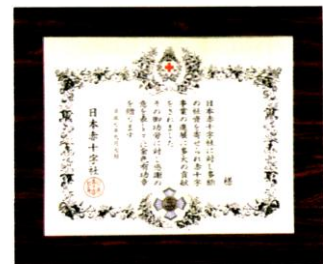 様
日本赤十字社に対し多額
の社資を寄せられ赤十字
事業の進展に多大の貢献
をされました
その御功労に対して感謝の
意を表しここに金色有功章
を贈ります
日本赤十字社